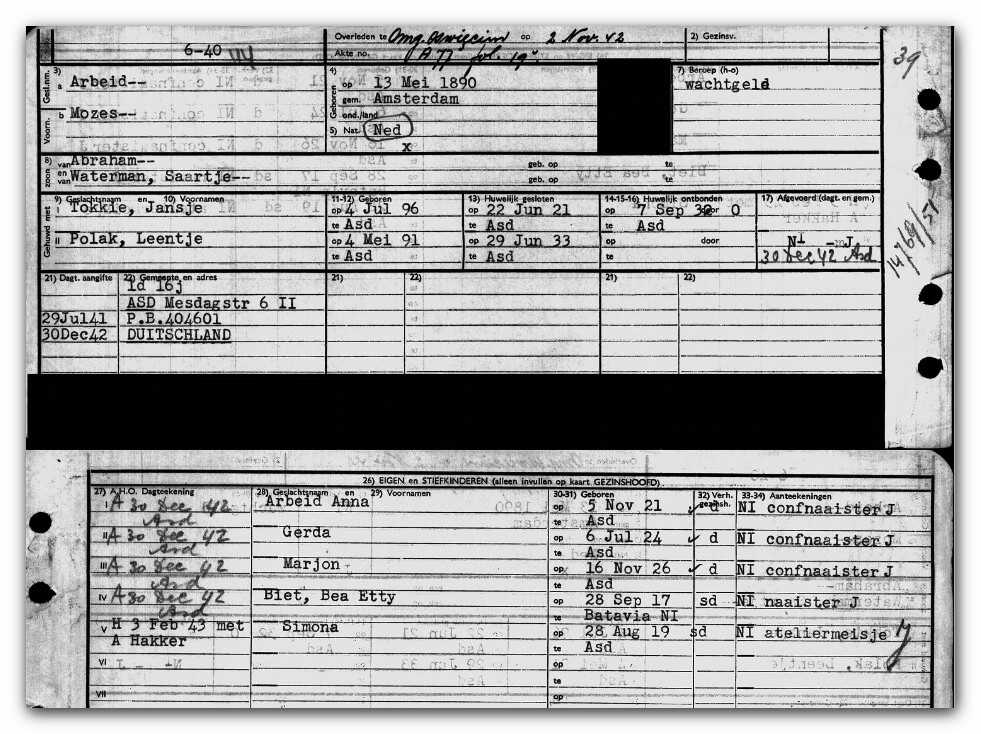 6-40
Overleden te Omg. Oswiecim op 2 Nov. 42
Akte no. A 77 fol. 19v
2) Gezinsv.
39
Gesl.nm. 3) a Arbeid--
Voorn. b Mozes--
4) Geboren op 13 Mei 1890
gem. Amsterdam
ond./land
5) Nat. Ned
x
7) Beroep (h-o)
wachtgeld
8) zoon van Abraham--
en van Waterman, Saartje--
geb. op te
geb. op te
Gehuwd met 9) Geslachtsnaam en 10) Voornamen
I Tokkie, Jansje
II Polak, Leentje
11-12) Geboren
op 4 Jul 96
te Asd
op 4 Mei 91
te Asd
13) Huwelijk gesloten
op 22 Jun 21
te Asd
op 29 Jun 33
te Asd
14-15-16) Huwelijk ontbonden
op 7 Sep 32 door O
te Asd
op door
te
17) Afgevoerd (dagt. en gem.)
NI - J
30 Dec 42 Asd
14769/51
21) Dagt. aangifte 22) Gemeente en adres 21) 22) 21) 22)
id 16j
ASD Mesdagstr 6 II
29Jul41 P.B.404601
30Dec42 DUITSCHLAND
26) EIGEN en STIEFKINDEREN (alleen invullen op kaart GEZINSHOOFD).
27) A.H.O. Dagteekening 28) Geslachtsnaam en 29) Voornamen 30-31) Geboren 32) Verh. t. gezinsh. 33-34) Aanteekeningen
I A 30 Dec 42 Arbeid Anna op 5 Nov 21 d NI confnaaister J
Asd te Asd
II A 30 Dec 42 Gerda op 6 Jul 24 d NI confnaaister J
Asd te Asd
III A 30 Dec 42 Marjon op 16 Nov 26 d NI confnaaister J
Asd te Asd
IV A 30 Dec 42 Biet, Bea Etty op 28 Sep 17 sd NI naaister J
Asd te Batavia NI
V H 3 Feb 43 met Simona op 28 Aug 19 sd NI ateliermeisje J
A Hakker te Asd
VI op
te
VII op